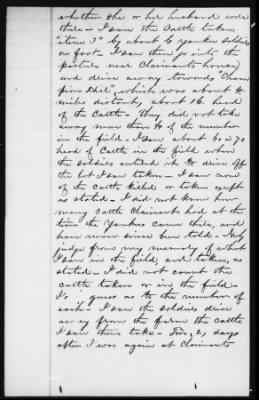 whether she or her husband were
there – I saw the Cattle taken
"item 3" by about 6 Yankee soldiers
on foot – I saw them go into the
pasture near Claimants house
and drive away towards "Cham
pion Hill", which was about ¾
mile distant, about 16. head
of the Cattle – they did not take
away more than ¼ of the number
in the field – I saw about 60 or 70
head of Cattle in the field when
the soldiers entered it to drive off
the lot I saw taken – I saw none
of the cattle killed or taken except
as stated – I did not know how
many cattle Claimants had at the
time the Yankees came there, and
have never since been told – I
judge from my memory of what
I saw in the field, and taken, as
stated – I did not count the
cattle taken or in the field
I guess as to the number of
each – I saw the soldiers drive
away from the farm the cattle
I saw them take – Two, days
after I was again at Claimants